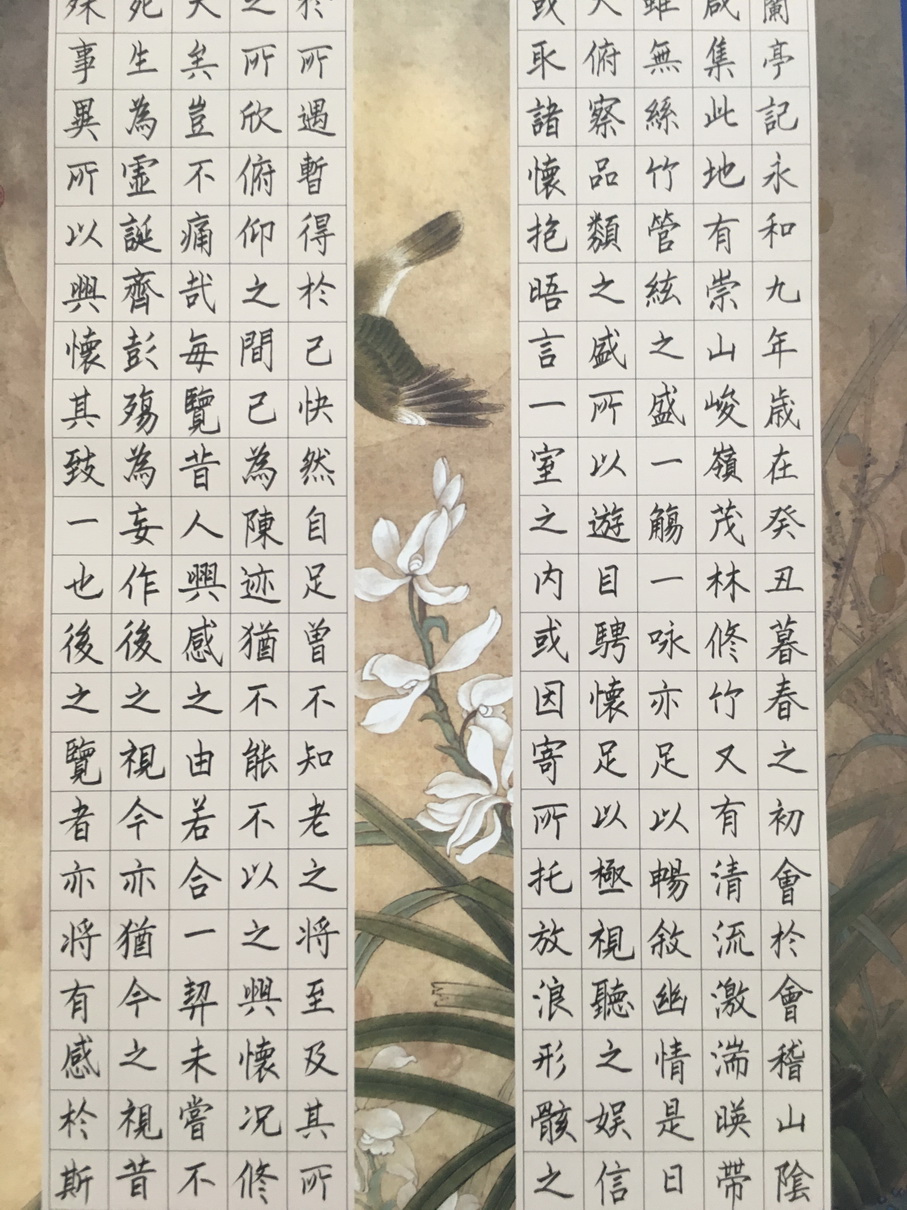 蘭亭記永和九年歲在癸丑暮春之初會於會稽山陰
咸集此地有崇山峻嶺茂林修竹又有清流激湍暎帶
雖無絲竹管絃之盛一觴一咏亦足以暢敘幽情是日
大俯察品類之盛所以遊目騁懷足以極視聽之娱信
或取諸懷抱晤言一室之内或因寄所托放浪形骸之
於所遇暫得於己快然自足曾不知老之將至及其所
之所欣俯仰之間已為陳迹猶不能不以之興懷况修
大矣豈不痛哉每覽昔人興感之由若合一契未嘗不
死生為虛誕齊彭殤為妄作後之視今亦猶今之視昔
殊事異所以興懷其致一也後之覽者亦将有感於斯